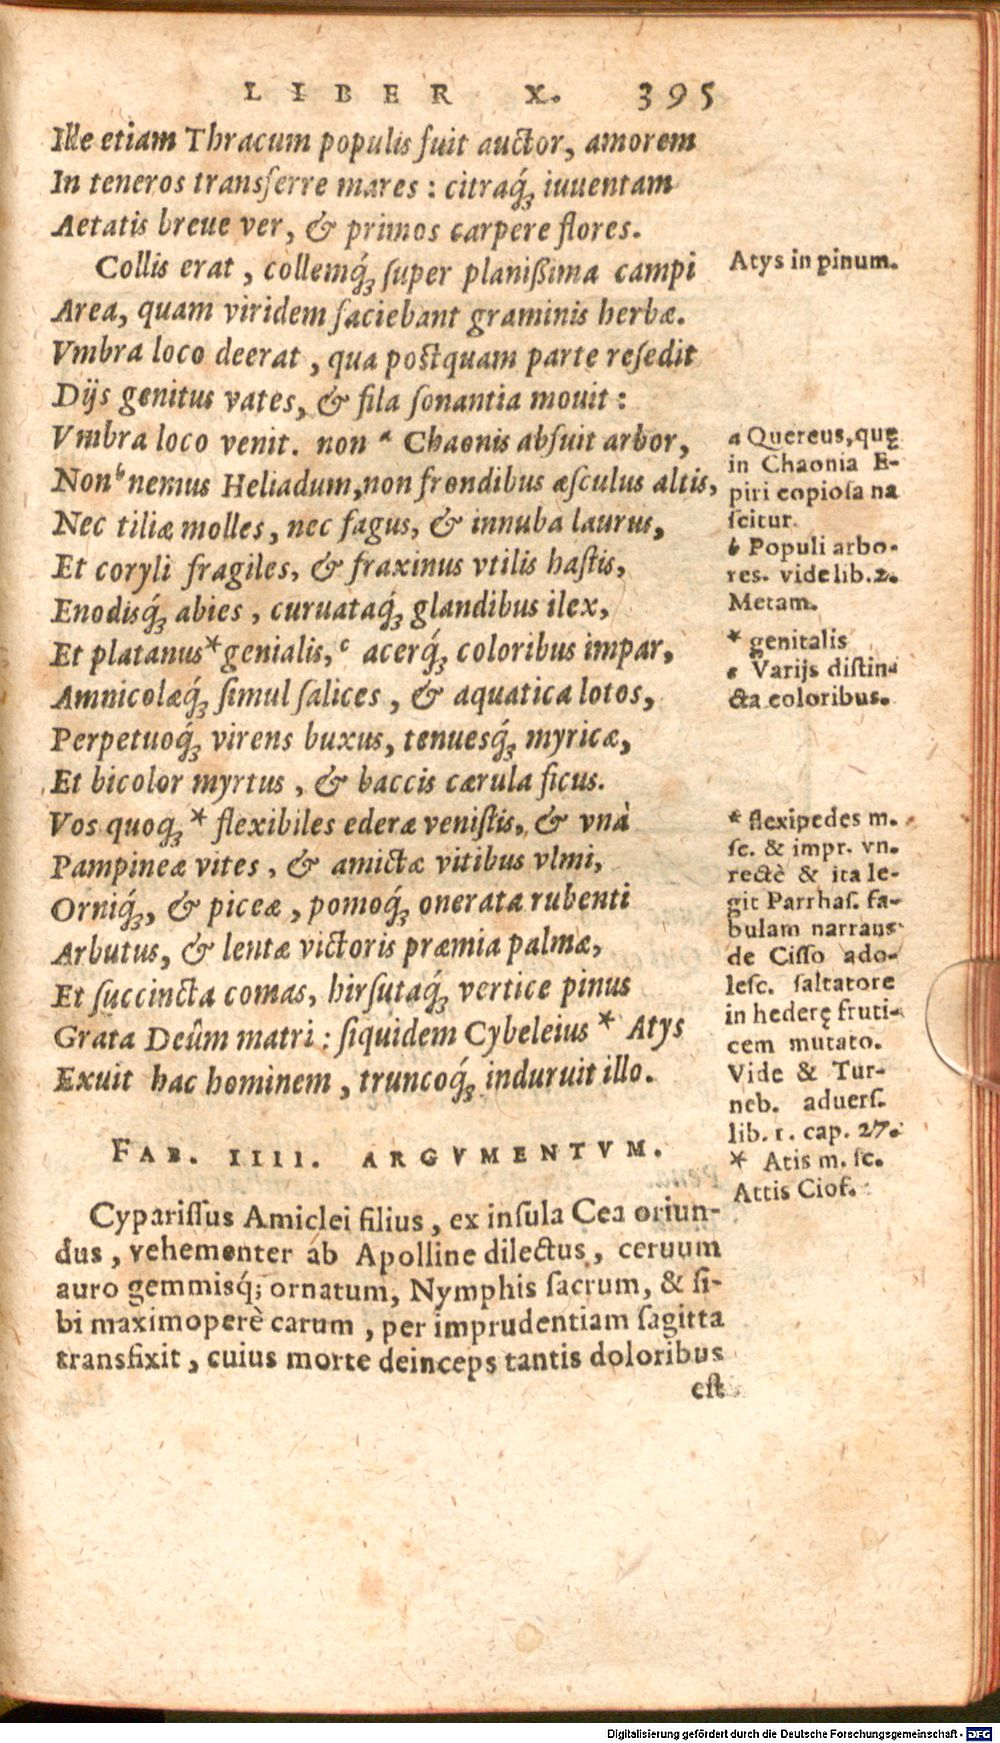 LIBER X. 395
Ille etiam Thracum populis fuit auctor, amorem
In teneros transferre mares: citraq́ꝫ iuuentam
Aetatis breue ver, & primos carpere flores.
Collis erat, collemq́ꝫ super planißima campi
Area, quam viridem faciebant graminis herbæ.
Vmbra loco deerat, qua postquam parte resedit
Dijs genitus vates, & fila sonantia mouit:
Vmbra loco venit. non ᵃ Chaonis absuit arbor,
Non ᵇ nemus Heliadum, non frondibus æsculus altis,
Nec tiliæ molles, nec fagus, & innuba laurus,
Et coryli fragiles, & fraxinus vtilis hastis,
Enodisq́ꝫ abies, curuataq́ꝫ glandibus ilex,
Et platanus * genialis, ᶜ acerq́ꝫ coloribus impar,
Amnicolæq́ꝫ simul salices, & aquatica lotos,
Perpetuoq́ꝫ virens buxus, tenuesq́ꝫ myricæ,
Et bicolor myrtus, & baccis cærula ficus.
Vos quoq́ꝫ * flexibiles ederæ venistis, & vnà
Pampineæ vites, & amictæ vitibus vlmi,
Orniq́ꝫ, & piceæ, pomoq́ꝫ onerata rubenti
Arbutus, & lentæ victoris præmia palmæ,
Et succincta comas, hirsutaq́ꝫ vertice pinus
Grata Deûm matri: siquidem Cybeleius * Atys
Exuit hac hominem, truncoq́ꝫ induruit illo.
FAB. IIII. ARGVMENTVM.
Cyparissus Amiclei filius, ex insula Cea oriun-
dus, vehementer ab Apolline dilectus, ceruum
auro gemmisq́; ornatum, Nymphis sacrum, & si-
bi maximoperè carum, per imprudentiam sagitta
transfixit, cuius morte deinceps tantis doloribus
est
Atys in pinum.
a Quercus, quę
in Chaonia E-
piri copiosa na
scitur.
b Populi arbo-
res. vide lib. 2.
Metam.
* genitalis
c Varijs distin-
cta coloribus.
* flexipedes m.
sc. & impr. vn.
rectè & ita le-
git Parrhas. fa-
bulam narrans
de Cisso ado-
lesc. saltatore
in hederę fruti-
cem mutato.
Vide & Tur-
neb. aduers.
lib. 1. cap. 27.
* Atis m. sc.
Attis Ciof.
Digitalisierung gefördert durch die Deutsche Forschungsgemeinschaft - DFG